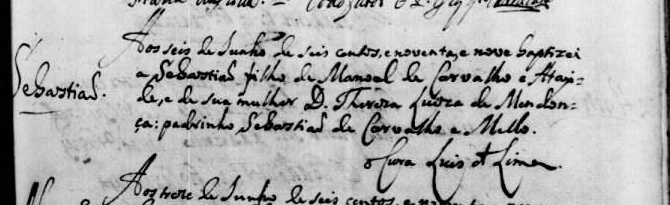 Sebastiaõ.
Aos seis de Junho de seis centos, e noventa, e nove baptizei
a Sebastiaõ filho de Manoel de Carvalho e Atay=
de, e de sua mulher D. Thereza Luiza de Mendon=
ça: padrinho Sebastiaõ de Carvalho e Mello.
o Cura Luis
Aos treze de Junho de seis centos, e